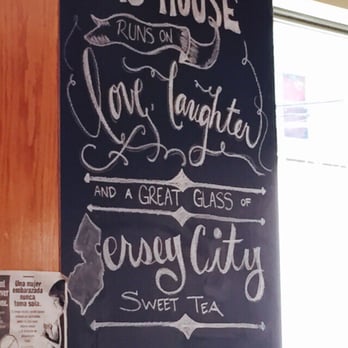 HOUSE
RUNS ON
love, laughter
AND A GREAT GLASS OF
Jersey City
SWEET TEA
Una mujer
embarazada
nunca
toma sola.